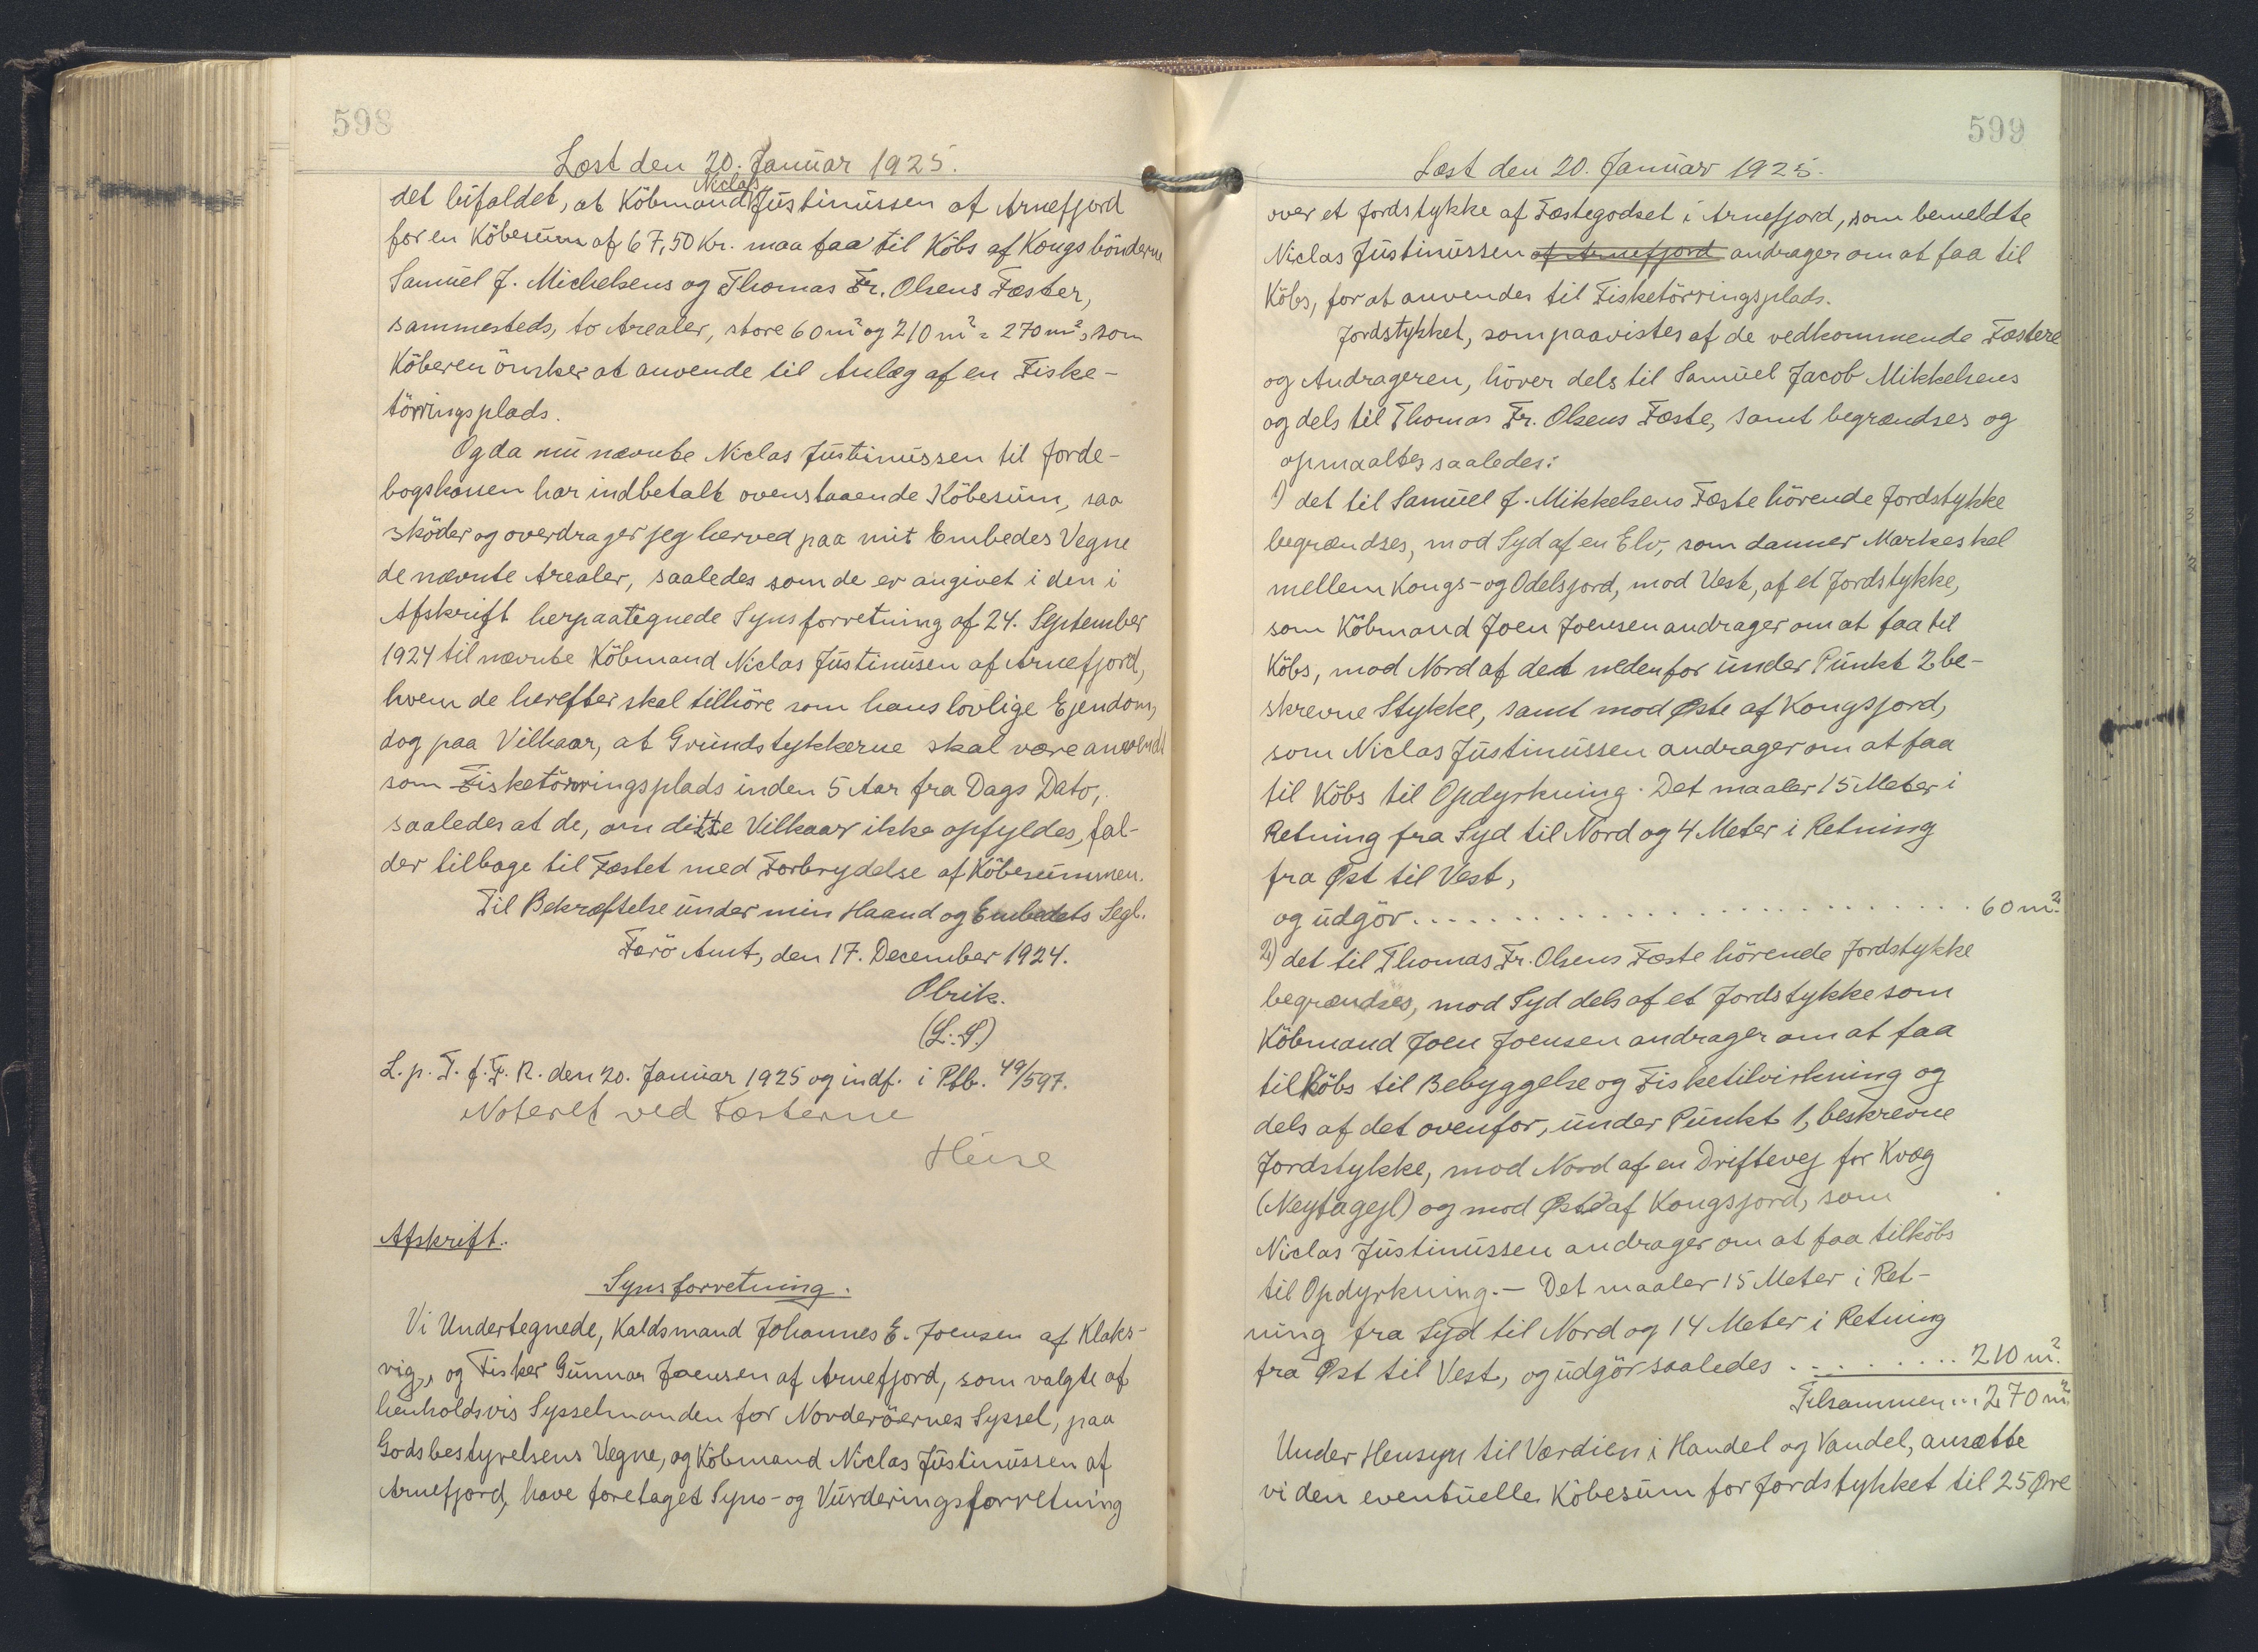 598
Læst den 20. Januar 1925.
det bifaldet, at Köbmand Niclas Justinussen af Arnefjord
for en Köbesum af 67,50 Kr. maa faa til Köbs af Kongsbönderne
Samuel J. Michelsens og Thomas Fr. Olsens Fæster,
sammesteds, to Arealer, store 60 m² og 210 m² = 270 m², som
Köberen önsker at anvende til Anlæg af en Fiske-
törringsplads.
Og da nu nævnte Niclas Justinussen til Jorde-
bogskassen har indbetalt ovenstaaende Köbesum, saa
sköder og overdrager jeg herved paa mit Embedes Vegne
de nævnte Arealer, saaledes som de er angivet i den i
Afskrift herpaategnede Synsforretning af 24. September
1924 til nævnte Köbmand Niclas Justinusen af Arnefjord,
hvem de herefter skal tilhöre som hans lovlige Ejendom,
dog paa Vilkaar, at Grundstykkerne skal være anvendt
som Fisketörringsplads inden 5 Aar fra Dags Dato,
saaledes at de, om dette Vilkaar ikke opfyldes, fal-
der tilbage til Fæstet med Forbrydelse af Köbesummen.
Til Bekræftelse under min Haand og Embedets Segl.
Færö Amt, den 17. December 1924.
Olrik.
(L.S.)
L. p. T. f. F. R. den 20. Januar 1925 og indf. i Ptb. 49/597.
Noteret ved Fæsterne
Heise
Afskrift.
Synsforretning.
Vi Undertegnede, Kaldsmand Johannes E. Joensen af Klaks-
vig, og Fisker Gunnar Joensen af Arnefjord, som valgte af
henholdsvis Sysselmanden for Norderöernes Syssel, paa
Godsbestyrelsens Vegne, og Köbmand Niclas Justinussen af
Arnefjord, have foretaget Syns- og Vurderingsforretning
599
Læst den 20. Januar 1925.
over et Jordstykke af Fæstegodset i Arnefjord, som bemeldte
Niclas Justinussen af Arnefjord andrager om at faa til
Köbs, for at anvendes til Fisketörringsplads.
Jordstykket, som paavistes af de vedkommende Fæstere
og Andrageren, hörer dels til Samuel Jacob Mikkelsens
og dels til Thomas Fr. Olsens Fæste, samt begrændses og
opmaaltes saaledes:
1) det til Samuel J. Mikkelsens Fæste hörende Jordstykke
begrændses, mod Syd af en Elv, som danner Markeskel
mellem Kongs- og Odelsjord, mod Vest, af et Jordstykke,
som Köbmand Joen Joensen andrager om at faa til
Köbs, mod Nord af det nedenfor under Punkt 2 be-
skrevne Stykke, samt mod Øste af Kongsjord,
som Niclas Justinussen andrager om at faa
til Köbs til Opdyrkning. Det maaler 15 Meter i
Retning fra Syd til Nord og 4 Meter i Retning
fra Øst til Vest,
og udgör . . . . . . . . . . . . . . . . . . . . . . . 60 m².
2) det til Thomas Fr. Olsens Fæste hörende Jordstykke
begrændses, mod Syd dels af et Jordstykke som
Köbmand Joen Joensen andrager om at faa
til Köbs til Bebyggelse og Fisketilvirkning og
dels af det ovenfor, under Punkt 1, beskrevne
Jordstykke, mod Nord af en Driftevej for Kvæg
(Neytagejl) og mod Øst af Kongsjord, som
Niclas Justinussen andrager om at faa tilköbs
til Opdyrkning. - Det maaler 15 Meter i Ret-
ning fra Syd til Nord og 14 Meter i Retning
fra Øst til Vest, og udgör saaledes . . . . . . . . . 210 m².
Tilsammen ... 270 m²
Under Hensyn til Værdien i Handel og Vandel, ansætte
vi den eventuelle Köbesum for Jordstykket til 25 Øre